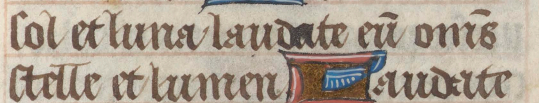 sol et luna laudate eū om̄s
stelle et lumen Laudate